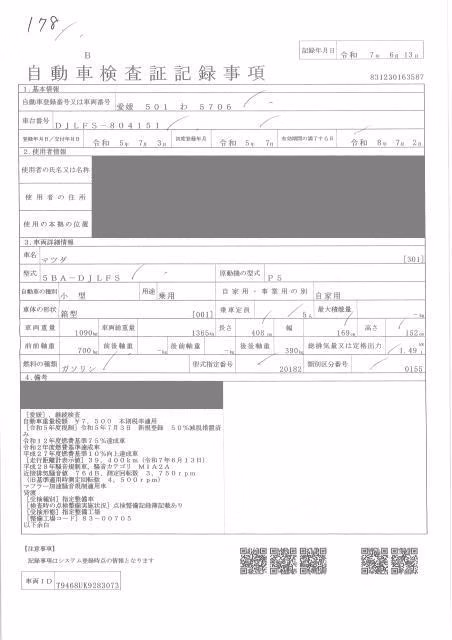 178
B
記録年月日 令和 7年 6月13日
自動車検査証記録事項
831230163587
1.基本情報
自動車登録番号又は車両番号 愛媛 501 わ 5706
車台番号 DJLFS-804151
登録年月日/交付年月日 令和 5年 7月 3日 初度登録年月 令和 5年 7月 有効期間の満了する日 令和 8年 7月 2日
2.使用者情報
使用者の氏名又は名称
使用者の住所
使用の本拠の位置
3.車両詳細情報
車名 マツダ [301]
型式 5BA-DJLFS 原動機の型式 P5
自動車の種別 小型 用途 乗用 自家用・事業用の別 自家用
車体の形状 箱型 [001] 乗車定員 5人 最大積載量 -kg
車両重量 1090kg 車両総重量 1365kg 長さ 408cm 幅 169cm 高さ 152cm
前前軸重 700kg 前後軸重 -kg 後前軸重 -kg 後後軸重 390kg 総排気量又は定格出力 1.49L
燃料の種類 ガソリン 型式指定番号 20182 類別区分番号 0155
4.備考
[愛媛],継続検査
自動車重量税額 ¥7,500 本則税率適用
[令和5年度税制]令和5年7月3日 新規登録 50%減税措置済
み
令和12年度燃費基準75%達成車
令和2年度燃費基準達成車
平成27年度燃費基準10%向上達成車
[走行距離計表示値]39,400km(令和7年6月13日)
平成28年騒音規制車,騒音カテゴリ M1A2A
近接排気騒音値 76dB,測定回転数 3,750rpm
(旧基準適用時測定回転数 4,500rpm)
マフラー加速騒音規制適用車
[受検種別]指定整備車
[検査時の点検整備実施状況]点検整備記録簿記載あり
[受検形態]指定整備工場
[整備工場コード]83-00705
以下余白
【注意事項】
記録事項はシステム登録時点の情報となります
車両ID T9468UK9283073